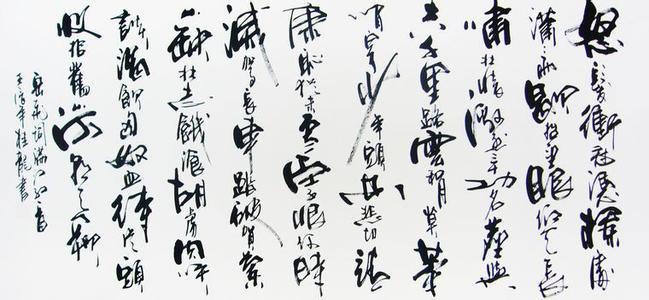 怒髮衝冠憑欄處
瀟瀟雨歇抬望眼仰天長
嘯壯懷激烈三十功名塵與
土八千里路雲和月莫等
閑白了少年頭空悲切靖
康恥猶未雪臣子恨何時
滅駕長車踏破賀蘭
山缺壯志飢餐胡虜肉笑
談渴飲匈奴血待從頭
收拾舊山河朝天闕
岳飛詞滿江紅一首
年桂龍書